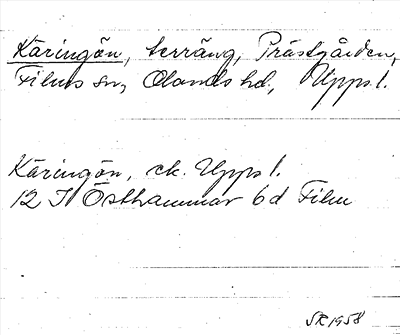 Käringön, terräng, Prästgården,
Films sn, Olands hd, Upps. l.
Käringön, ek. Upps l.
12 I Östhammar 6d Film
SR 1958